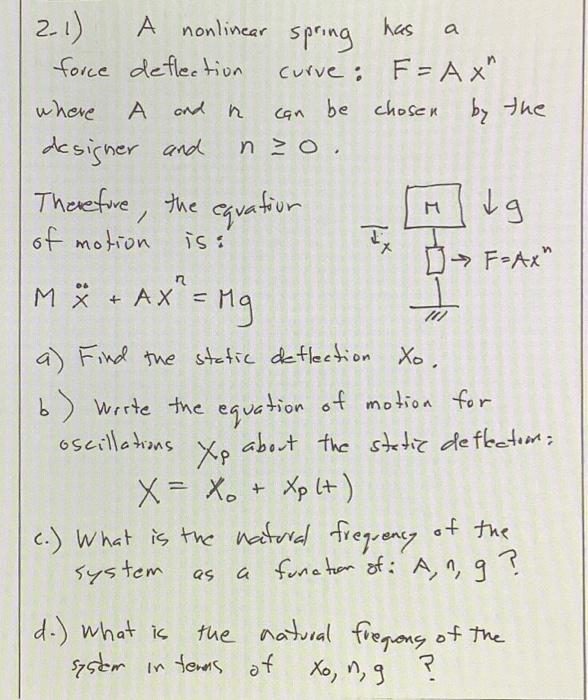 2-1) A nonlinear spring has a
force deflection curve: F = A xⁿ
where A and n can be chosen by the
designer and n ≥ 0.
Therefore, the equation
of motion is:
M ↓g
↓x
→ F=Axⁿ
M ẍ + A xⁿ = Mg
a) Find the static deflection X₀.
b) Write the equation of motion for
oscillations Xp about the static deflection:
X = X₀ + Xp(t)
c.) What is the natural frequency of the
system as a function of: A, n, g ?
d.) What is the natural frequency of the
system in terms of X₀, n, g ?